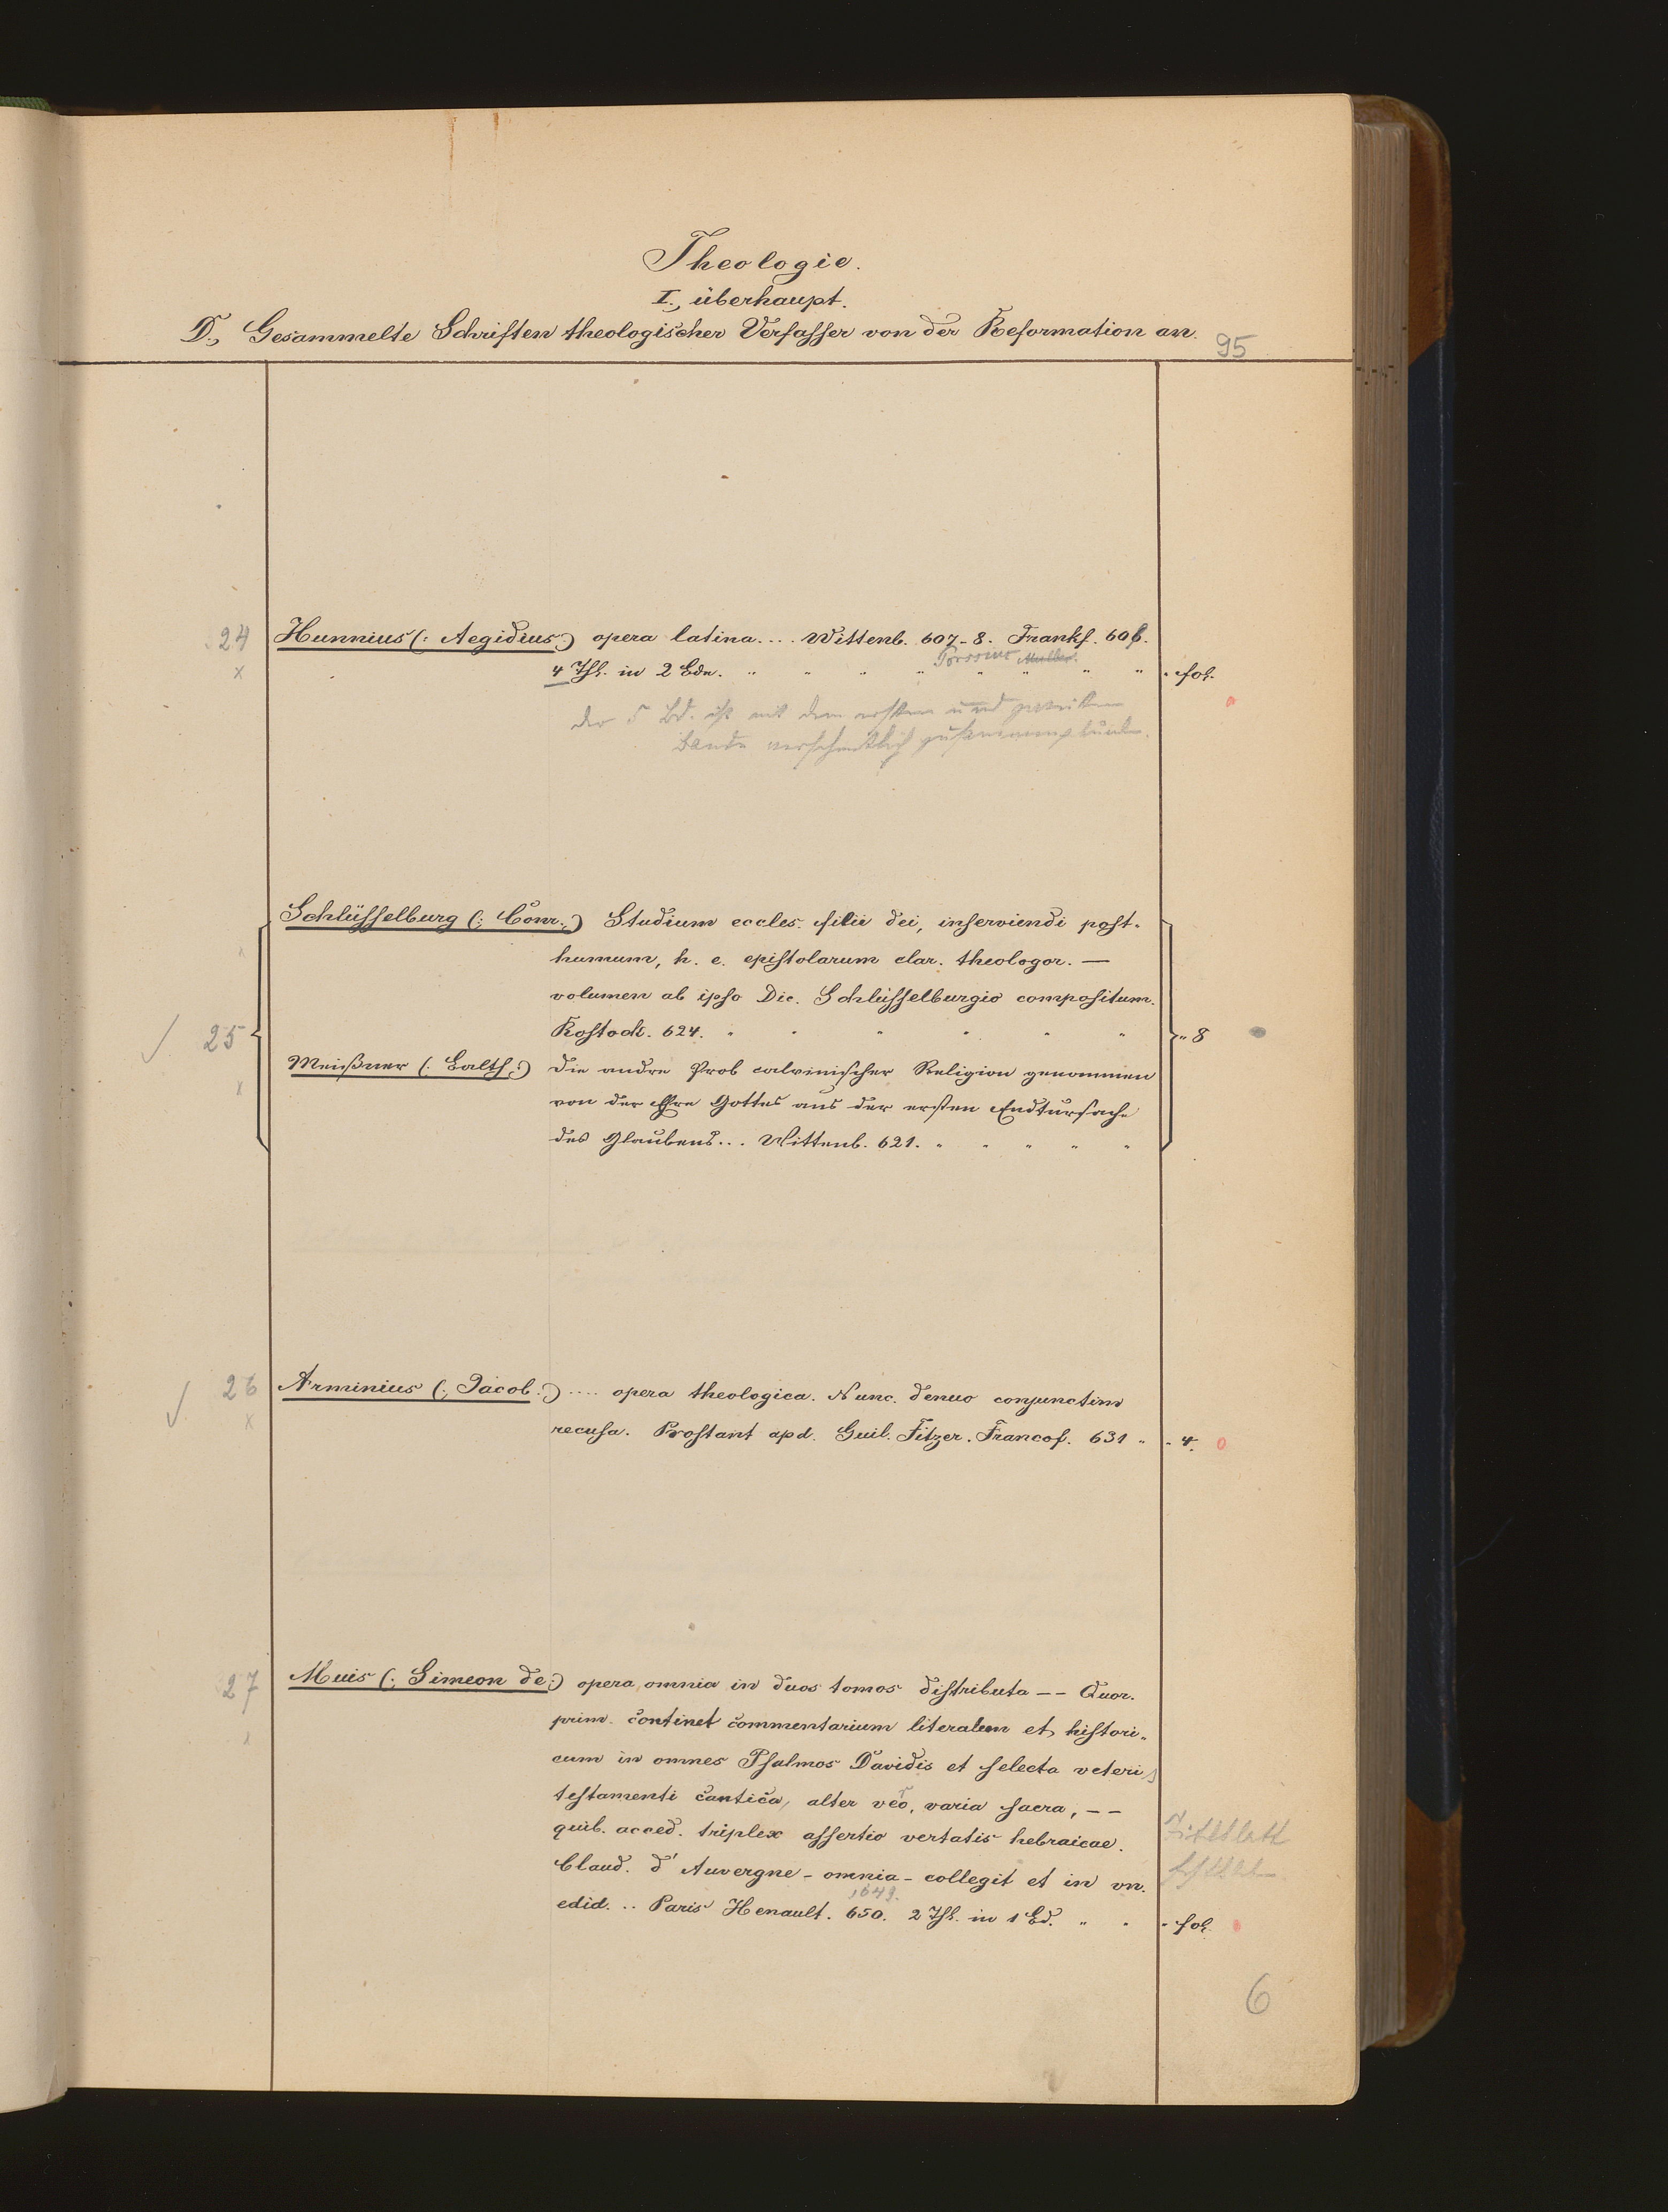 Theologie.
I., überhaupt.
D., Gesammelte Schriften theologischer Verfasser von der Reformation an.
95
24 Hunnius (: Aegidius:) opera latina .... Wittenb. 607-8. Frankf. 606.
Porssius Muller.
x 4 Th. in 2 Bdn. " " " " " " " " " fol.
der 5 Bd. ist mit dem ersten und zweiten
Bande versehentlich zusammengebunden.
Schlüsselburg (: Conr.:) Studium eccles. filii dei, inserviendi post-
humum, h. e. epistolarum clar. theologor. —
volumen ab ipso Dic. Schlüsselburgio compositum.
25 Rostock. 624. " " " " " " " 8
Meißner (: Balth:) die andre Prob calvinischer Religion genommen
x von der Ehre Gottes aus der ersten Endtursache
des Glaubens... Wittenb. 621. " " " " "
26 Arminius (: Jacob:) .... opera theologica. Nunc. denuo conjunctim
x recusa. Prostant apd. Guil. Fitzer. Francof. 631 " " 4.
27 Muis (: Simeon de:) opera omnia in duos tomos distributa -- Quor.
prim. continet commentarium literalem et histori-
x cum in omnes Psalmos Davidis et selecta veteris
testamenti cantica, alter veo, varia sacra, --
quib. acced. triplex assertio vertatis hebraicae.
Titelblatt
Claud. d'Auvergne - omnia - collegit et in un.
1649.
edid. .. Paris Henault. 650. 2 Th. in 1 Bd. " " " fol.
6